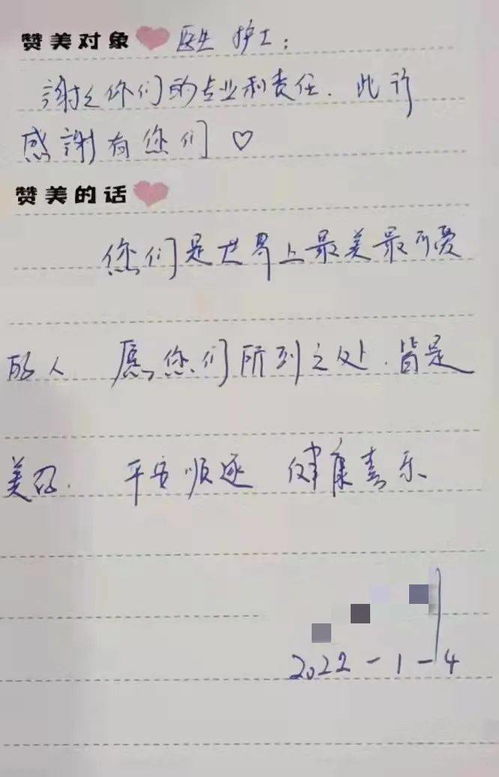 赞美对象 医生 护士：
謝之你们的专业和责任. 此行
感謝有您们♡
赞美的话
您们是世界上最美最可爱
的人 愿您们所到之处.皆是
美好. 平安顺遂 健康喜乐
2022-1-4